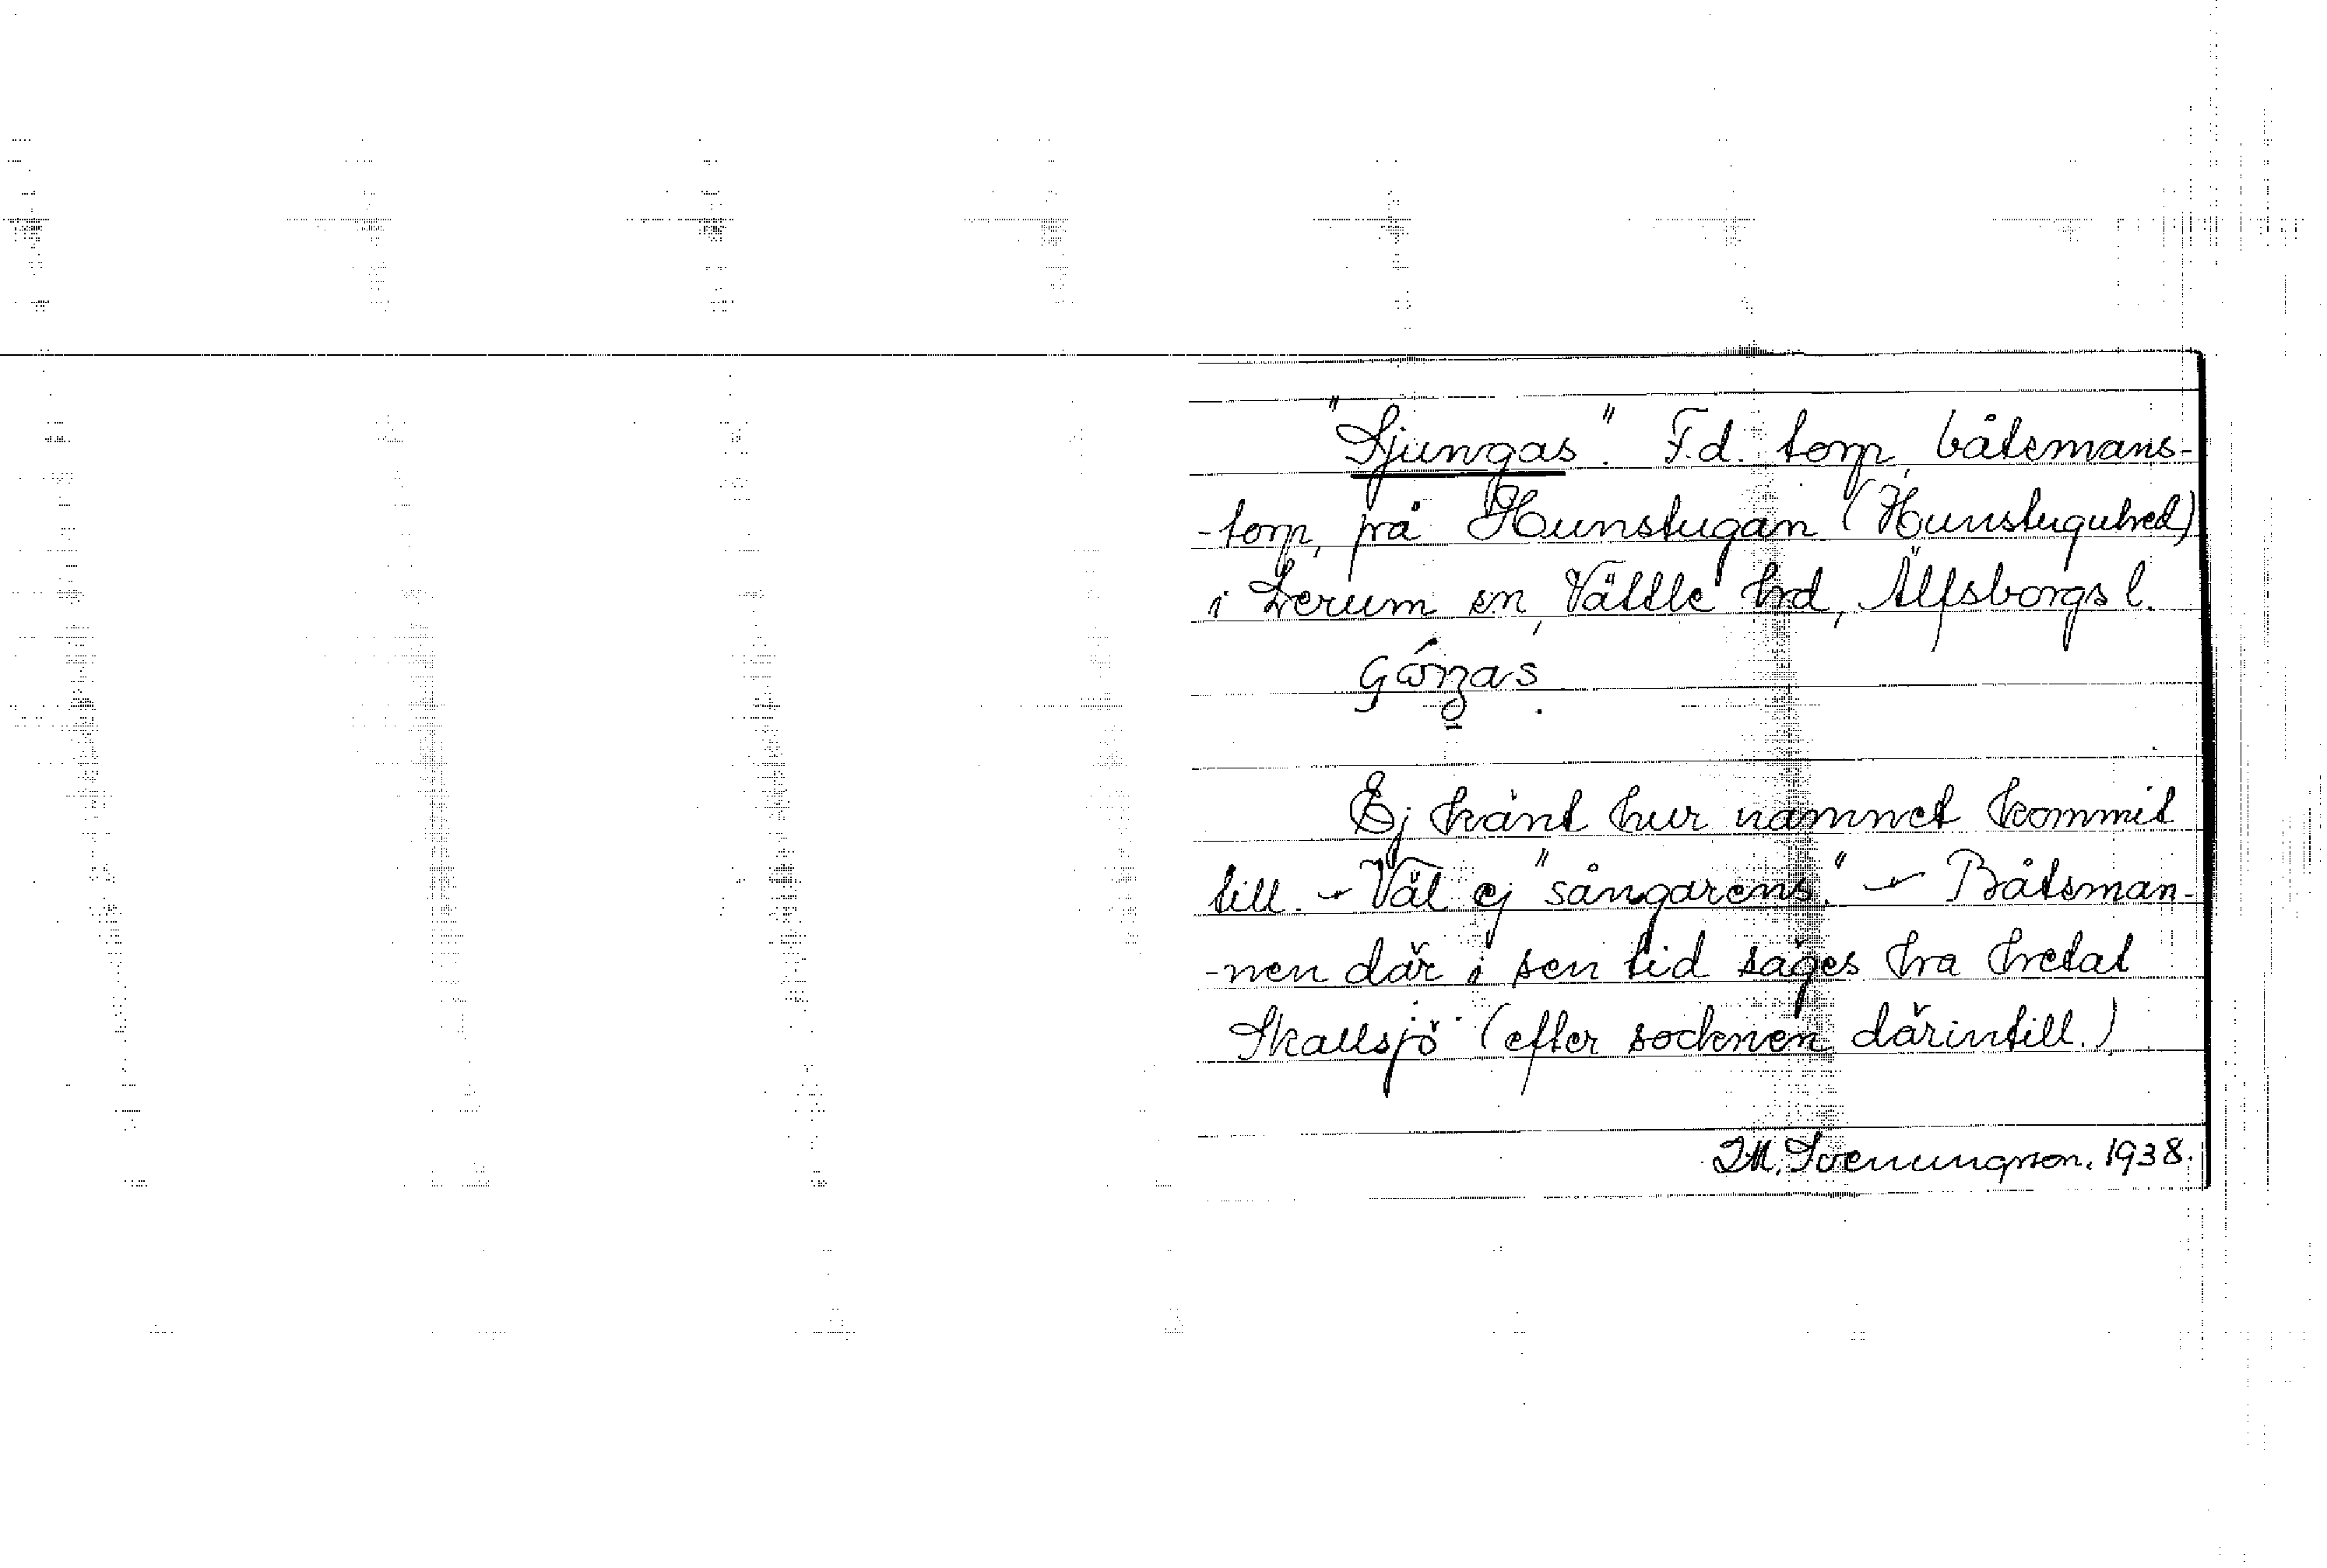 "Sjungas". F.d. torp, båtsmans-
-torp, på Hunstugan (Hunstugubed)
i Lerum sn, Vättle hd, Älfsborgs l.
Ej känt hur namnet kommit
till. - Väl ej "sångarens." - Båtsman-
-nen där i sen tid säges ha hetat
Skallsjö (efter socknen därintill.)
J.M. Svenungsson. 1938.